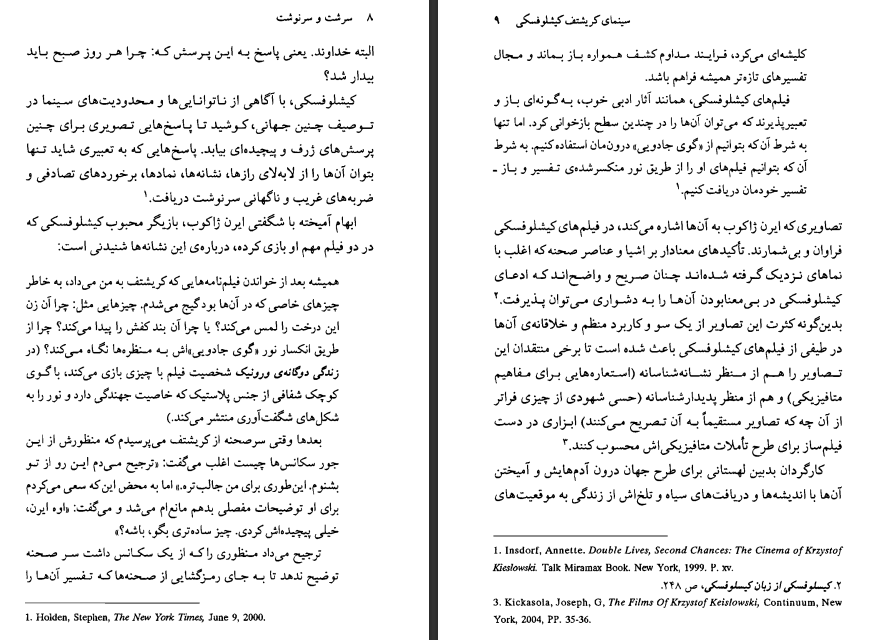 ۸ سرشت و سرنوشت
البته خداوند. یعنی پاسخ به این پرسش که: چرا هر روز صبح باید
بیدار شد؟
کیشلوفسکی، با آگاهی از ناتوانایی‌ها و محدودیت‌های سینما در
توصیف چنین جهانی، کوشید تا پاسخ‌هایی تصویری برای چنین
پرسش‌های ژرف و پیچیده‌ای بیابد. پاسخ‌هایی که به تعبیری شاید تنها
بتوان آن‌ها را از لابه‌لای رازها، نشانه‌ها، نمادها، برخوردهای تصادفی و
ضربه‌های غریب و ناگهانی سرنوشت دریافت.۱
ابهام آمیخته با شگفتی ایرن ژاکوب، بازیگر محبوب کیشلوفسکی که
در دو فیلم مهم او بازی کرده، درباره‌ی این نشانه‌ها شنیدنی است:
همیشه بعد از خواندن فیلم‌نامه‌هایی که کریشتف به من می‌داد، به خاطر
چیزهای خاصی که در آن‌ها بود گیج می‌شدم. چیزهایی مثل: چرا آن زن
این درخت را لمس می‌کند؟ یا چرا آن بند کفش را پیدا می‌کند؟ چرا از
طریق انکسار نور «گوی جادویی»‌اش به منظره‌ها نگاه می‌کند؟ (در
زندگی دوگانه‌ی ورونیک شخصیت فیلم با چیزی بازی می‌کند، با گوی
کوچک شفافی از جنس پلاستیک که خاصیت جهندگی دارد و نور را به
شکل‌های شگفت‌آوری منتشر می‌کند.)
بعدها وقتی سرصحنه از کریشتف می‌پرسیدم که منظورش از این
جور سکانس‌ها چیست اغلب می‌گفت: «ترجیح می‌دم این رو از تو
بشنوم. این‌طوری برای من جالب‌تره.» اما به محض این که سعی می‌کردم
برای او توضیحات مفصلی بدهم مانع‌ام می‌شد و می‌گفت: «اوه ایرن،
خیلی پیچیده‌اش کردی. چیز ساده‌تری بگو، باشه؟»
ترجیح می‌داد منظوری را که از یک سکانس داشت سر صحنه
توضیح ندهد تا به جای رمزگشایی از صحنه‌ها که تفسیر آن‌ها را
1. Holden, Stephen, The New York Times, June 9, 2000.
سینمای کریشتف کیشلوفسکی ۹
کلیشه‌ای می‌کرد، فرایند مداوم کشف همواره باز بماند و مجال
تفسیرهای تازه‌تر همیشه فراهم باشد.
فیلم‌های کیشلوفسکی، همانند آثار ادبی خوب، به‌گونه‌ای باز و
تعبیرپذیرند که می‌توان آن‌ها را در چندین سطح بازخوانی کرد. اما تنها
به شرط آن که بتوانیم از «گوی جادویی» درون‌مان استفاده کنیم. به شرط
آن که بتوانیم فیلم‌های او را از طریق نور منکسرشده‌ی تفسیر و باز ـ
تفسیر خودمان دریافت کنیم.۱
تصاویری که ایرن ژاکوب به آن‌ها اشاره می‌کند، در فیلم‌های کیشلوفسکی
فراوان و بی‌شمارند. تأکیدهای معنادار بر اشیا و عناصر صحنه که اغلب با
نماهای نزدیک گرفته شده‌اند چنان صریح و واضح‌اند که ادعای
کیشلوفسکی در بی‌معنابودن آن‌ها را به دشواری می‌توان پذیرفت.۲
بدین‌گونه کثرت این تصاویر از یک سو و کاربرد منظم و خلاقانه‌ی آن‌ها
در طیفی از فیلم‌های کیشلوفسکی باعث شده است تا برخی منتقدان این
تصاویر را هم از منظر نشانه‌شناسانه (استعاره‌هایی برای مفاهیم
متافیزیکی) و هم از منظر پدیدارشناسانه (حسی شهودی از چیزی فراتر
از آن چه که تصاویر مستقیماً به آن تصریح می‌کنند) ابزاری در دست
فیلم‌ساز برای طرح تأملات متافیزیکی‌اش محسوب کنند.۳
کارگردان بدبین لهستانی برای طرح جهان درون آدم‌هایش و آمیختن
آن‌ها با اندیشه‌ها و دریافت‌های سیاه و تلخ‌اش از زندگی به موقعیت‌های
1. Insdorf, Annette. Double Lives, Second Chances: The Cinema of Krzystof
Kieslowski. Talk Miramax Book. New York, 1999. P. xv.
۲. کیسلوفسکی از زبان کیسلوفسکی، ص ۲۴۸.
3. Kickasola, Joseph, G, The Films Of Krzystof Keislowski, Continuum, New
York, 2004, PP. 35-36.